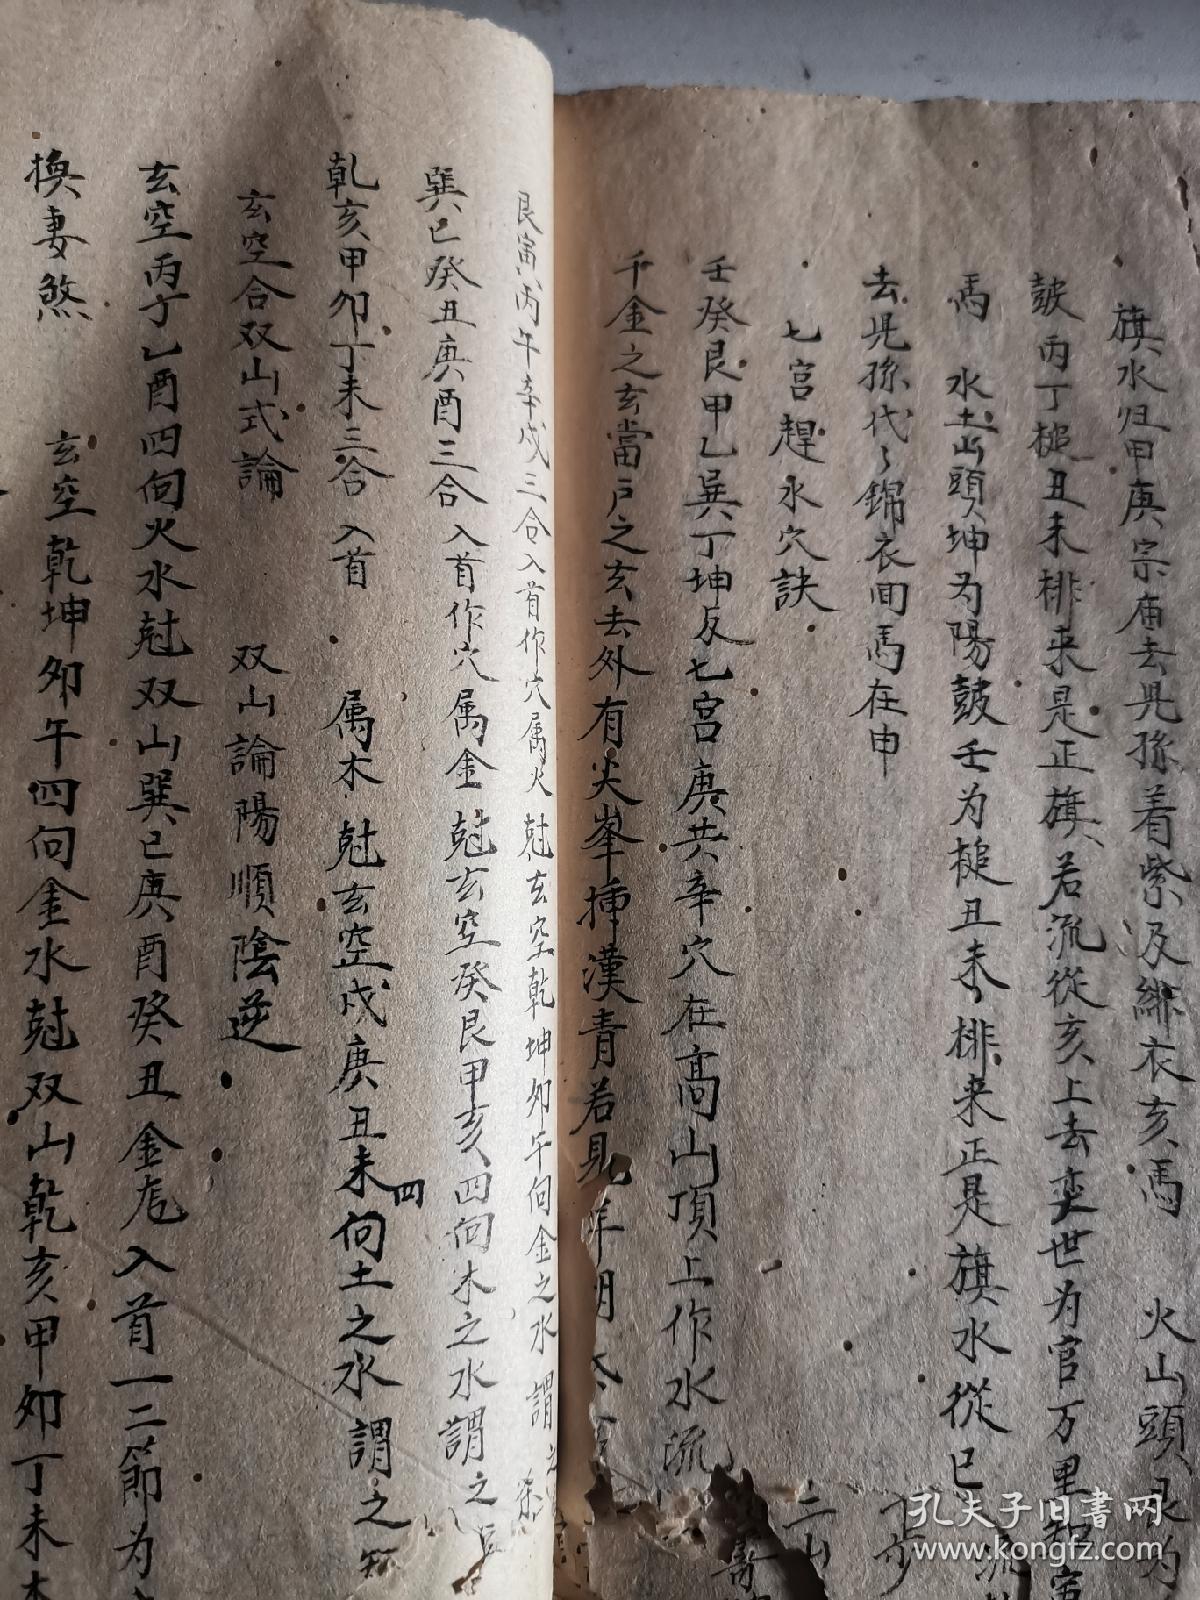 旗水归甲庚宗庙去児孫着紫及緋衣亥馬 火山頭艮为
皷丙丁槌丑未排来是正旗若流從亥上去変世为官万里
馬 水土山頭坤为陽皷壬为槌丑未排来正是旗水從巳
去児孫代々錦衣回馬在申
七宫趕水穴訣
壬癸艮甲乙巽丁坤反七宫庚共辛穴在高山頂上作水流 二山
千金之玄當户之玄去外有尖峯挿漢青若見
艮寅丙午辛戌三合入首作穴属火尅玄空乾坤卯午向金之水謂之
巽巳癸丑庚酉三合入首作穴属金尅玄空癸艮甲亥四向木之水謂之
乹亥甲卯丁未三合入首 属木尅玄空戌庚丑未四向土之水謂之
玄空合双山式論 双山論陽順陰逆
玄空丙丁乙酉四向火水尅双山巽巳庚酉癸丑金尨入首一二節为
換妻煞 玄空乾坤卯午四向金水尅双山乾亥甲卯丁未木
孔夫子旧书网
www.kongfz.com